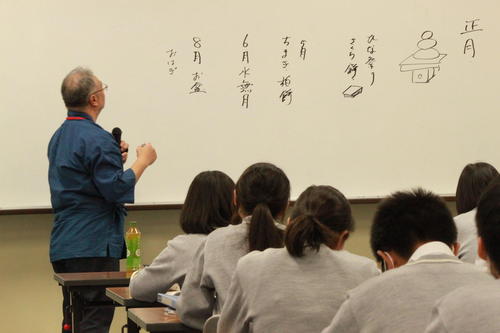 正月
ひな祭り
さくら餅
5月
ちまき 柏餅
6月 水無月
8月 お盆
おはぎ